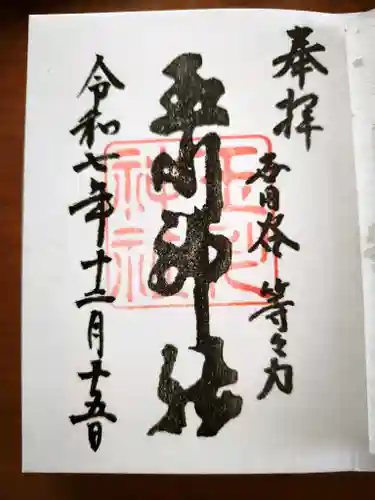 奉拝
世田谷 等々力
玉川神社
令和七年十二月十五日
玉川
神社